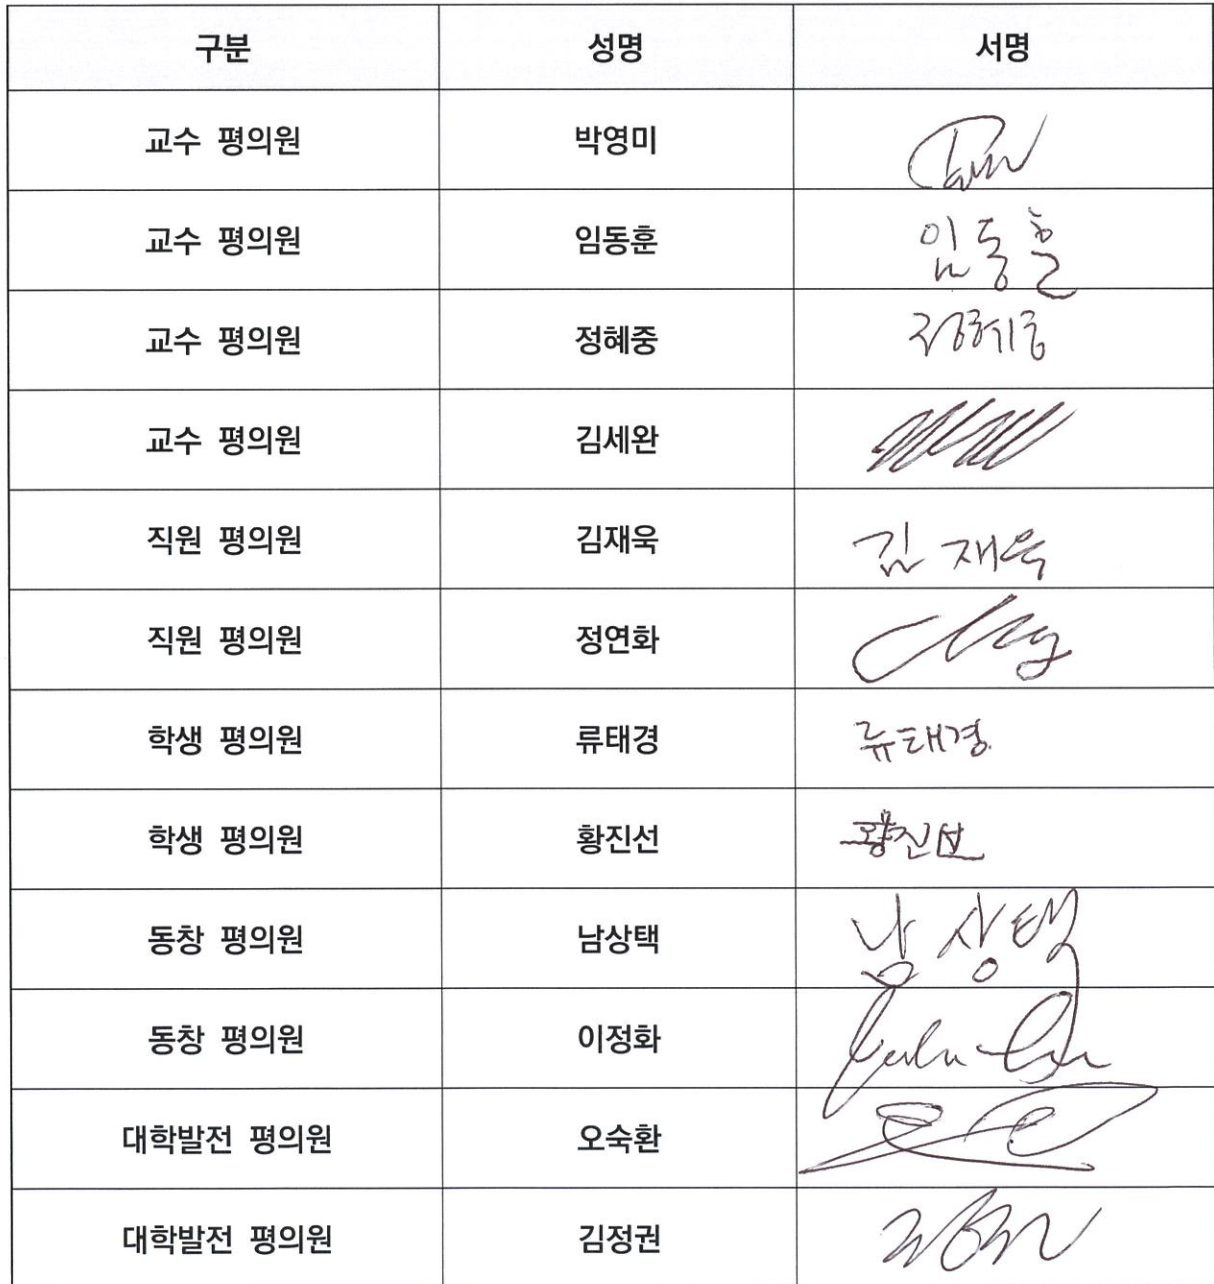 구분 성명 서명
교수 평의원 박영미
교수 평의원 임동훈 임동훈
교수 평의원 정혜중 정혜중
교수 평의원 김세완
직원 평의원 김재욱 김재욱
직원 평의원 정연화
학생 평의원 류태경 류태경
학생 평의원 황진선 황진선
동창 평의원 남상택 남상택
동창 평의원 이정화
대학발전 평의원 오숙환
대학발전 평의원 김정권